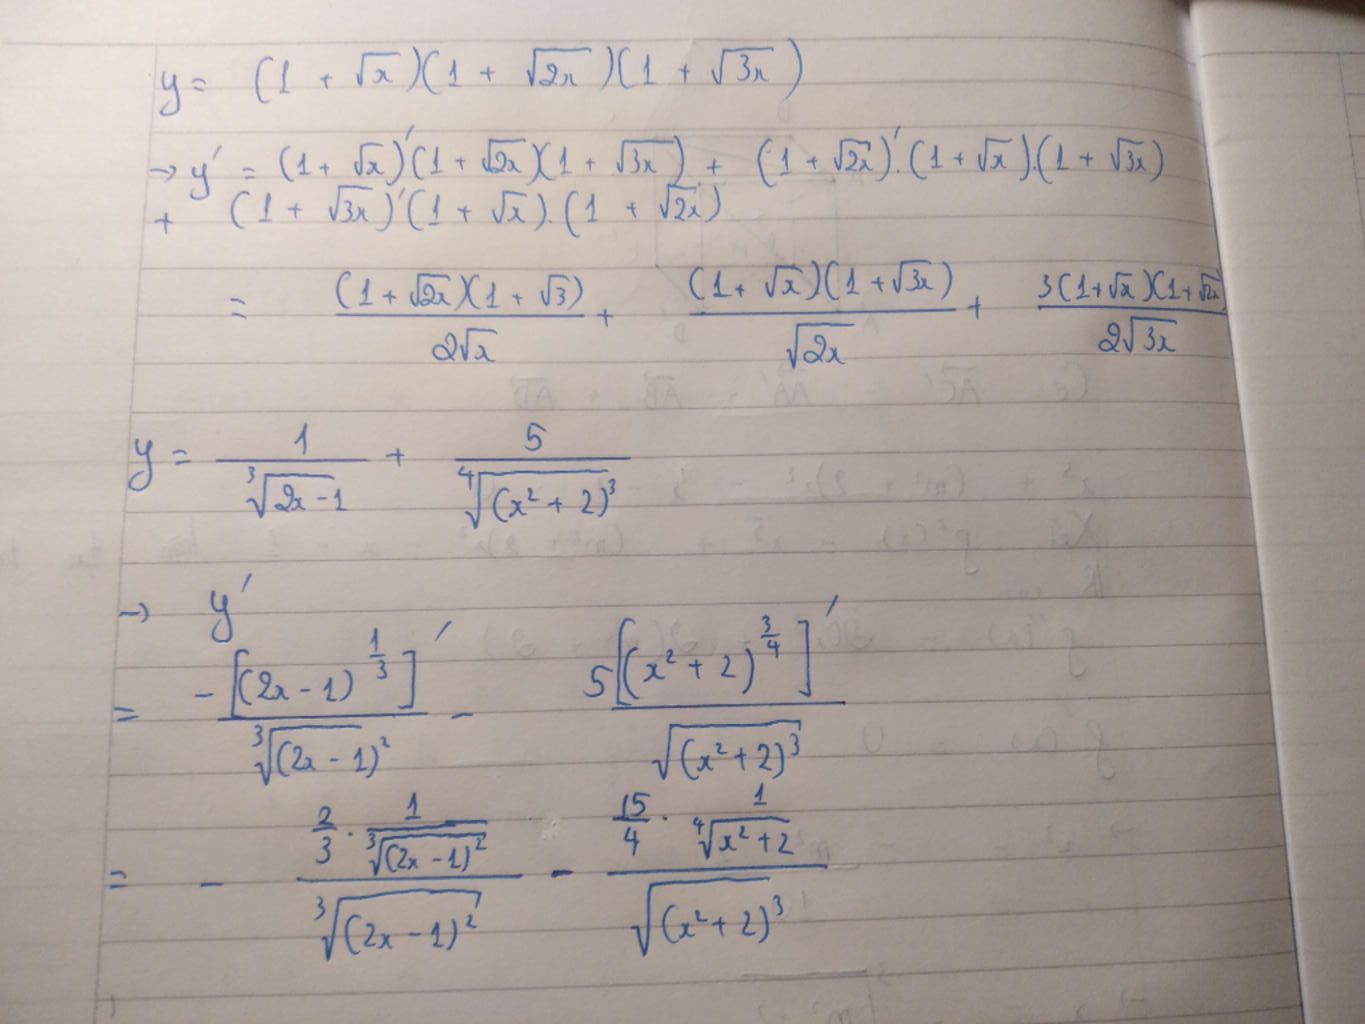 y = (1 + √x)(1 + √2x)(1 + √3x)
→ y' = (1 + √x)'(1 + √2x)(1 + √3x) + (1 + √2x)'.(1 + √x).(1 + √3x)
+ (1 + √3x)'(1 + √x).(1 + √2x)
= (1 + √2x)(1 + √3)/2√x + (1 + √x)(1 + √3x)/√2x + 3(1 + √x)(1 + √2x)/2√3x
y = 1/∛(2x - 1) + 5/∜((x² + 2)³)
→ y'
= -[(2x - 1)^(1/3)]'/∛((2x - 1)²) - 5[(x² + 2)^(3/4)]'/√((x² + 2)³)
= - (2/3 · 1/∛((2x - 1)²))/∛((2x - 1)²) - (15/4 · 1/∜(x² + 2))/√((x² + 2)³)